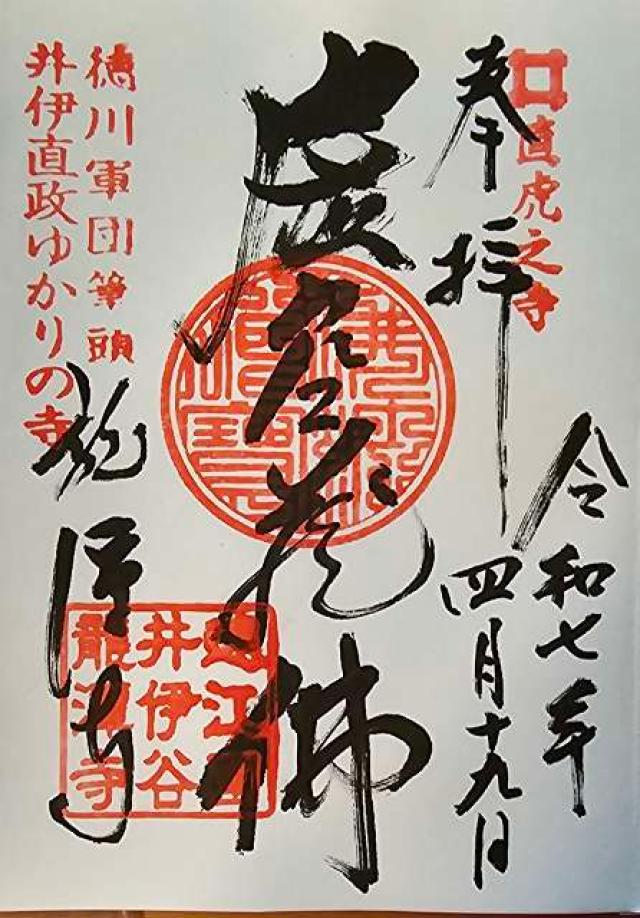 直虎之寺
奉拝
令和七年
四月十九日
虚空蔵佛
遠江国
井伊谷
龍潭寺
徳川軍団筆頭
井伊直政ゆかりの寺
龍潭寺